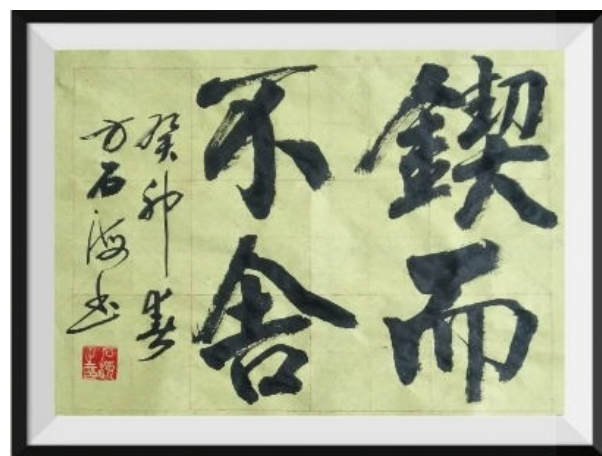 鍥而
不舍
癸卯春
方石海书